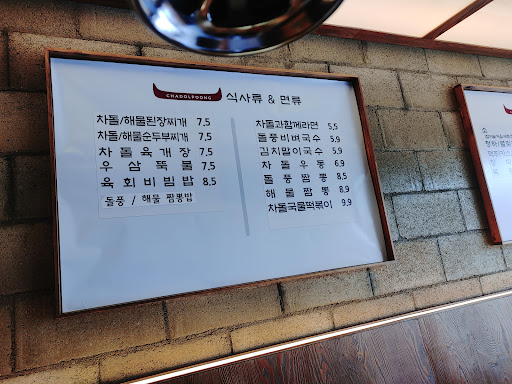 CHADOLPOONG
식사류 & 면류
차돌/해물된장찌개 7,5
차돌/해물순두부찌개 7,5
차돌육개장 7,5
우삼뚝불 7,5
육회비빔밥 8,5
돌풍 / 해물 짬뽕밥
차돌과함께라면 5,5
돌풍비벼국수 5,9
김치말이국수 5,9
차돌우동 6,9
돌풍짬뽕 8,5
해물짬뽕 8,9
차돌국물떡볶이 9,9